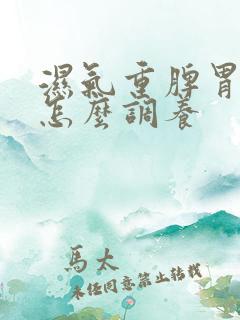 濕氣重脾胃
怎麼調養
馬太
未經同意禁止轉載